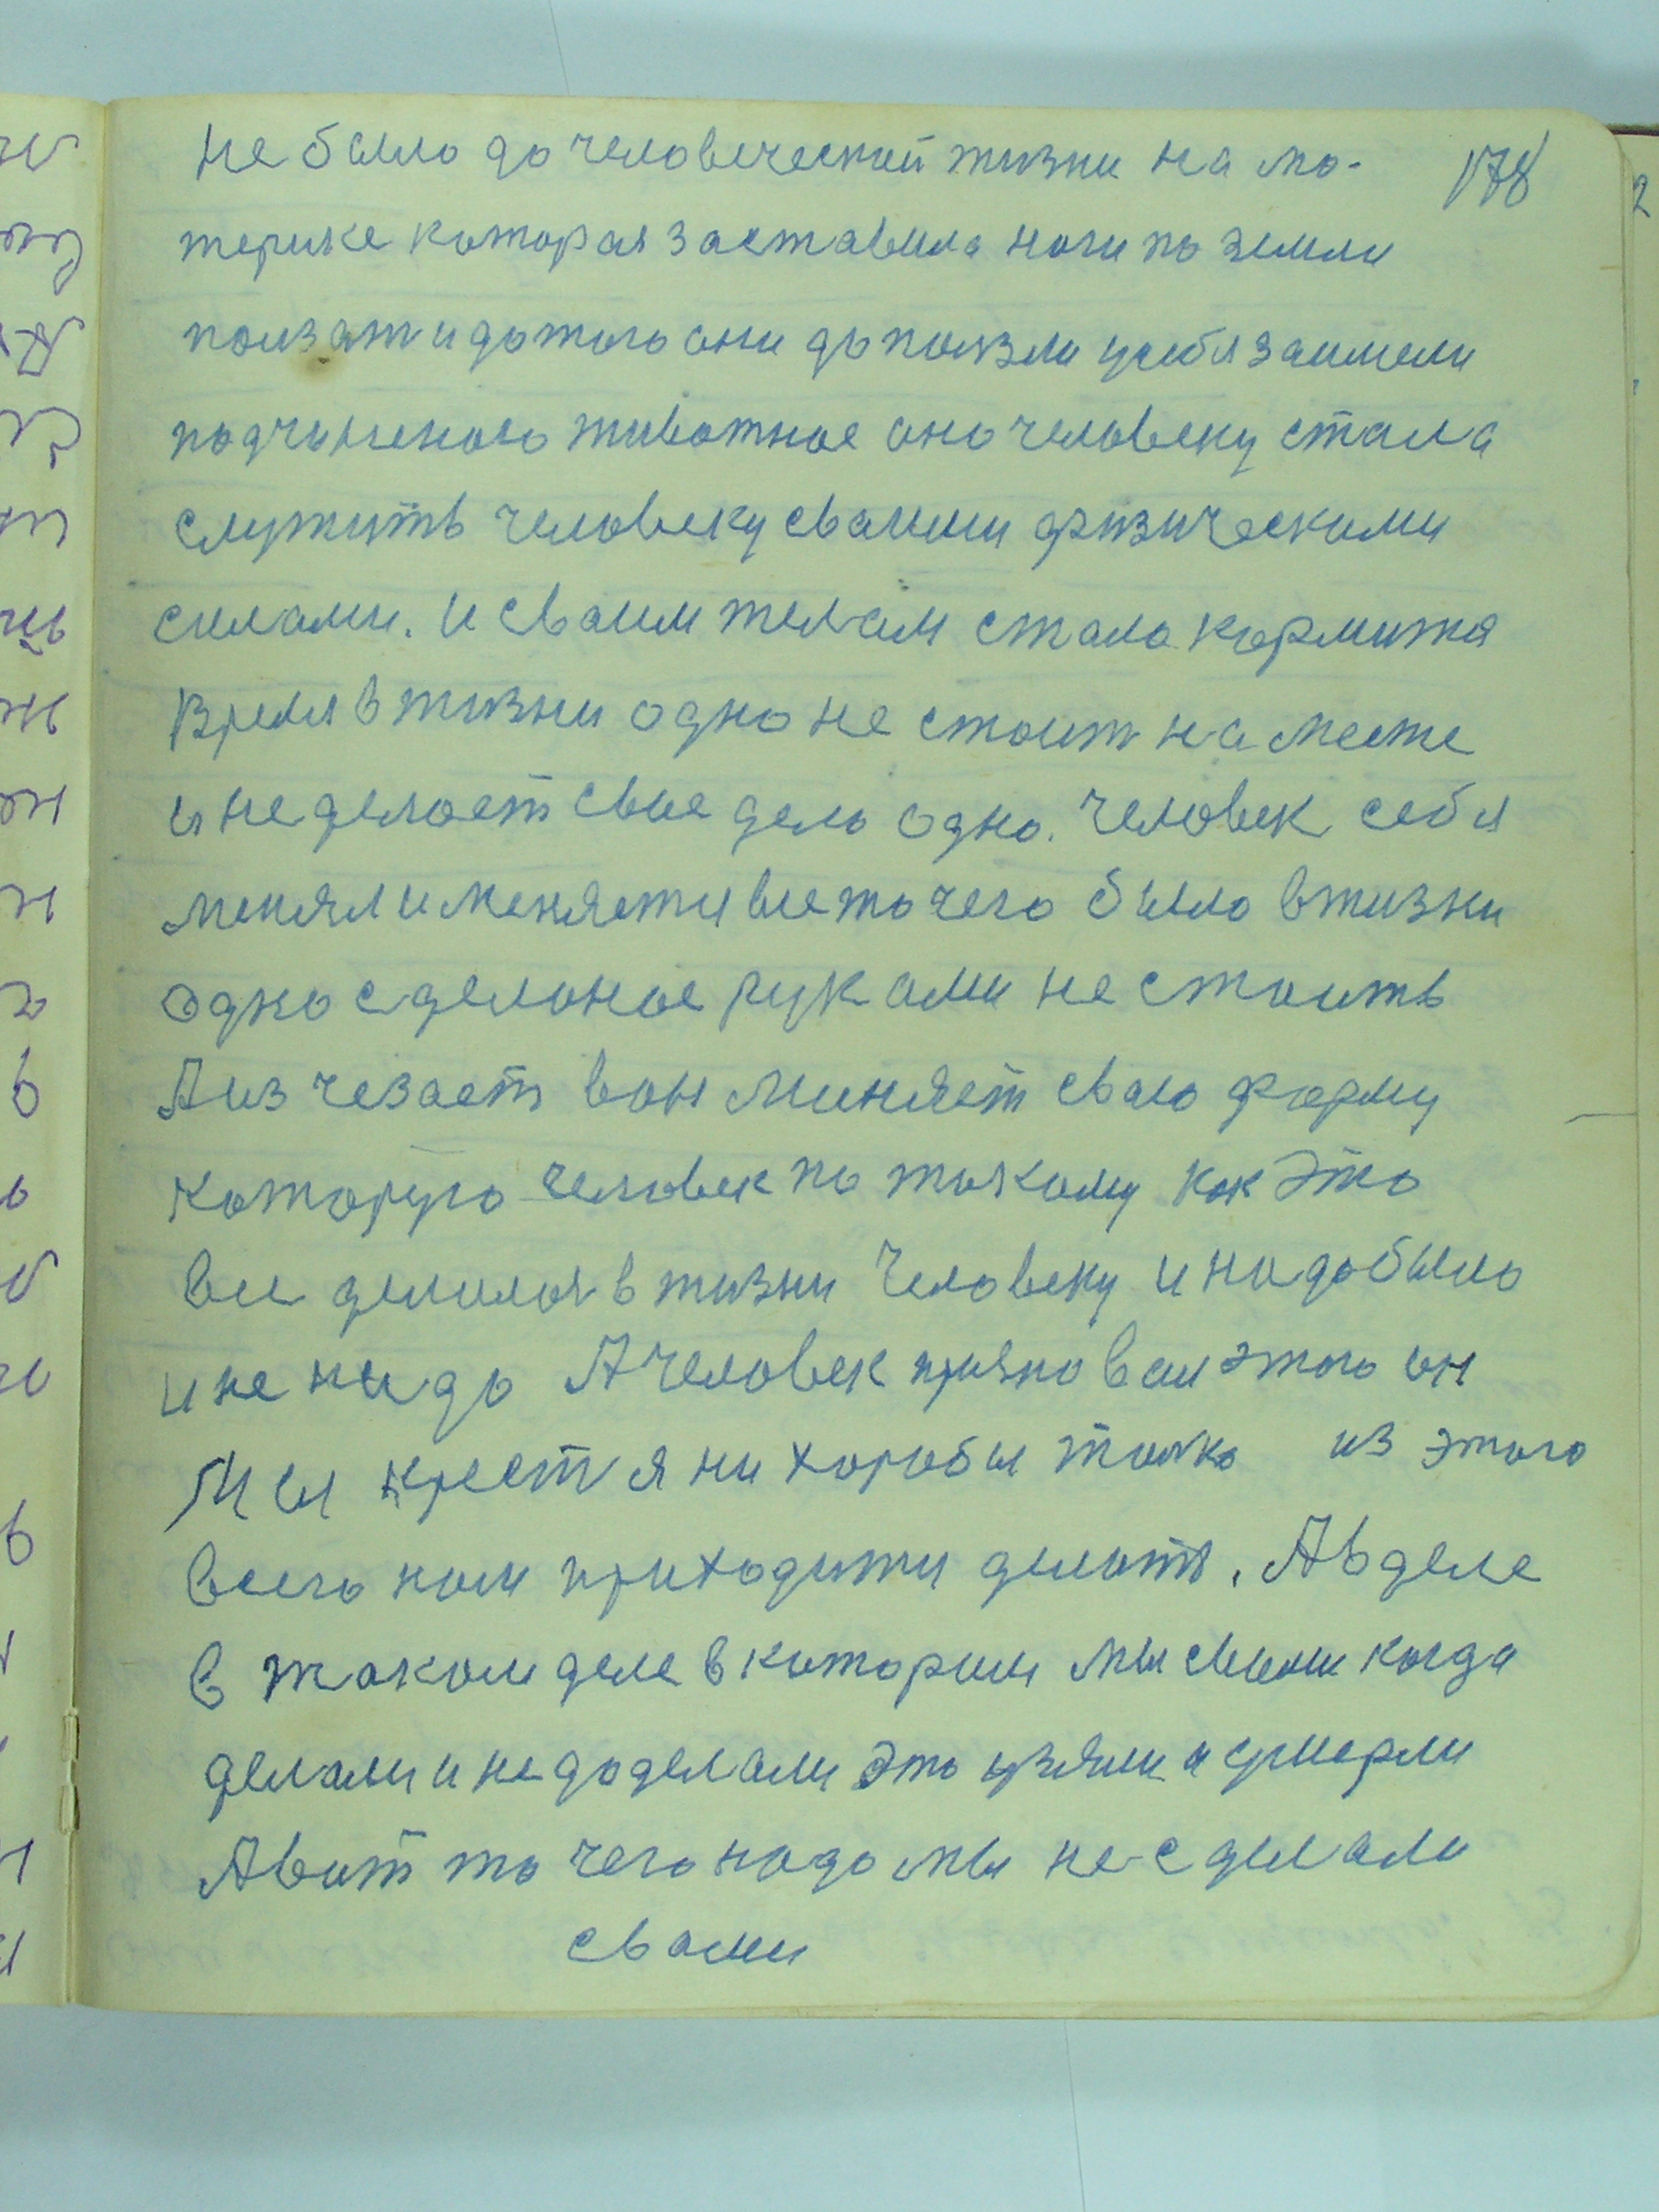 178
не было до человеческой жизни на мо-
терике которая заставила ноги по земли
ползат и до того они дополвзли у себя заимели
подчиненого животное оно человеку стала
служить человеку сваими физическими
силами. и сваим телам стало кормится
Время в жизни одно не стоит на месте
и не делоет свое дело одно. Человек себя
менял и меняети все то чего было в жизни
одно сделоное руками не стоить
А изчезает вон миняет сваю форму
которую человек по такому как это
все делалоя в жизни Человеку и надо было
и не надо А человек признавал этого он
Мы крестяни хоробы толко из этого
всего нам приходити делоть. А в деле
в жаком деле в котором мы с вами когда
делали и не доделали это узяли и сумерли
А вот то чего надо мы не сделали
с вами